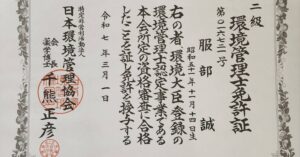 二級
環境管理士免許証
第二〇六七三一号
服部 誠
昭和五十一年十一月十四日生
右の者環境大臣登録の
環境管理士認定事業である
本会所定の資格審査に合格
したことを証し免許を授与する
令和七年三月一日
特定非営利活動法人
日本環境管理協会
会長
薬学博士 千熊正彦